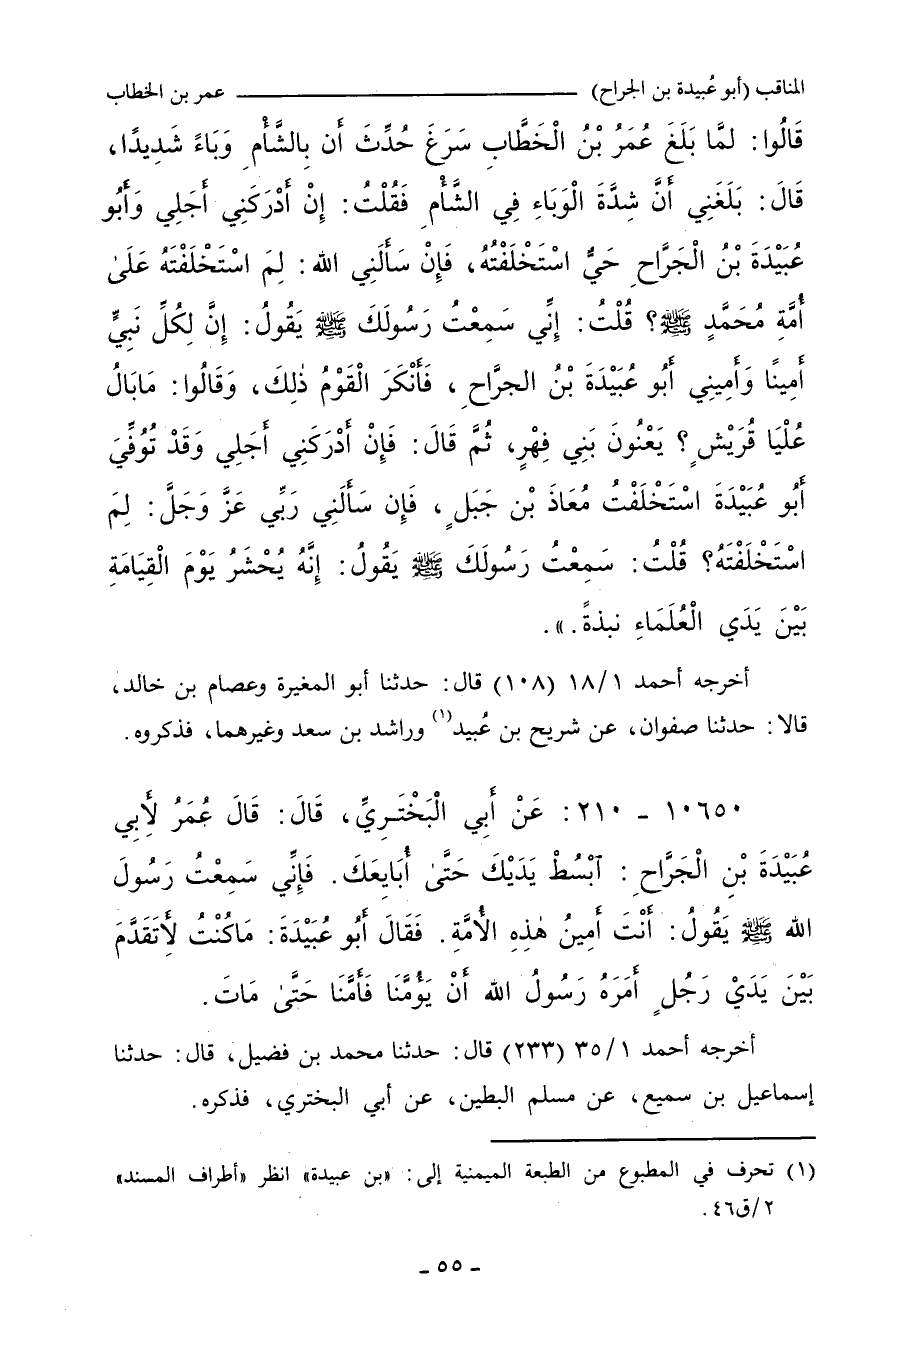 المناقب (أبو عُبيدة بن الجراح) ــــــــــــــــــــ عمر بن الخطاب
قَالُوا: لمَّا بَلَغَ عُمَرُ بْنُ الْخَطَّابِ سَرَغَ حُدِّثَ أَن بِالشَّأْمِ وَبَاءً شَدِيدًا،
قَالَ: بَلَغَنِي أَنَّ شِدَّةَ الْوَبَاءِ فِي الشَّأْمِ فَقُلْتُ: إِنْ أَدْرَكَنِي أَجَلِي وَأَبُو
عُبَيْدَةَ بْنُ الْجَرَّاحِ حَيٌّ اسْتَخْلَفْتُهُ، فَإِنْ سَأَلَنِي الله: لِمَ اسْتَخْلَفْتَهُ عَلَىٰ
أُمَّةِ مُحَمَّدٍ ﷺ؟ قُلْتُ: إِنِّي سَمِعْتُ رَسُولَكَ ﷺ يَقُولُ: إِنَّ لِكُلِّ نَبِيٍّ
أَمِينًا وَأَمِينِي أَبُو عُبَيْدَةَ بْنُ الجرَّاحِ، فَأَنْكَرَ الْقَوْمُ ذٰلِكَ، وَقَالُوا: مَابَالُ
عُلْيَا قُرَيْشٍ؟ يَعْنُونَ بَنِي فِهْرٍ، ثُمَّ قَالَ: فَإِنْ أَدْرَكَنِي أَجَلِي وَقَدْ تُوُفِّيَ
أَبُو عُبَيْدَةَ اسْتَخْلَفْتُ مُعَاذَ بْنِ جَبَلٍ، فَإِن سَأَلَنِي رَبِّي عَزَّ وَجَلَّ: لِمَ
اسْتَخْلَفْتَهُ؟ قُلْتُ: سَمِعْتُ رَسُولَكَ ﷺ يَقُولُ: إِنَّهُ يُحْشَرُ يَوْمَ الْقِيَامَةِ
بَيْنَ يَدَي الْعُلَمَاءِ نبذةً.».
أخرجه أحمد ١/ ١٨ (١٠٨) قال: حدثنا أبو المغيرة وعصام بن خالد،
قالا: حدثنا صفوان، عن شريح بن عُبيد(١) وراشد بن سعد وغيرهما، فذكروه.
١٠٦٥٠ - ٢١٠: عَنْ أَبِي الْبَخْتَرِيِّ، قَالَ: قَالَ عُمَرُ لأَبِي
عُبَيْدَةَ بْنِ الْجَرَّاحِ: ابْسُطْ يَدَيْكَ حَتَّىٰ أُبَايِعَكَ. فَإِنِّي سَمِعْتُ رَسُولَ
الله ﷺ يَقُولُ: أَنْتَ أَمِينُ هٰذِهِ الأُمَّةِ. فَقَالَ أَبُو عُبَيْدَةَ: مَاكُنْتُ لأَتَقَدَّمَ
بَيْنَ يَدَيْ رَجُلٍ أَمَرَهُ رَسُولُ الله أَنْ يَؤُمَّنَا فَأَمَّنَا حَتَّىٰ مَاتَ.
أخرجه أحمد ١/ ٣٥ (٢٣٣) قال: حدثنا محمد بن فضيل، قال: حدثنا
إسماعيل بن سميع، عن مسلم البطين، عن أبي البختري، فذكره.
(١) تحرف في المطبوع من الطبعة الميمنية إلى: «بن عبيدة» انظر «أطراف المسند»
٢/ق٤٦.
- ٥٥ -